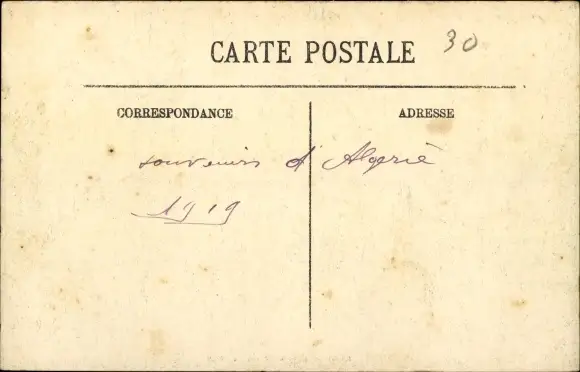 CARTE POSTALE 30
CORRESPONDANCE ADRESSE
souvenirs d'Algérie
1919